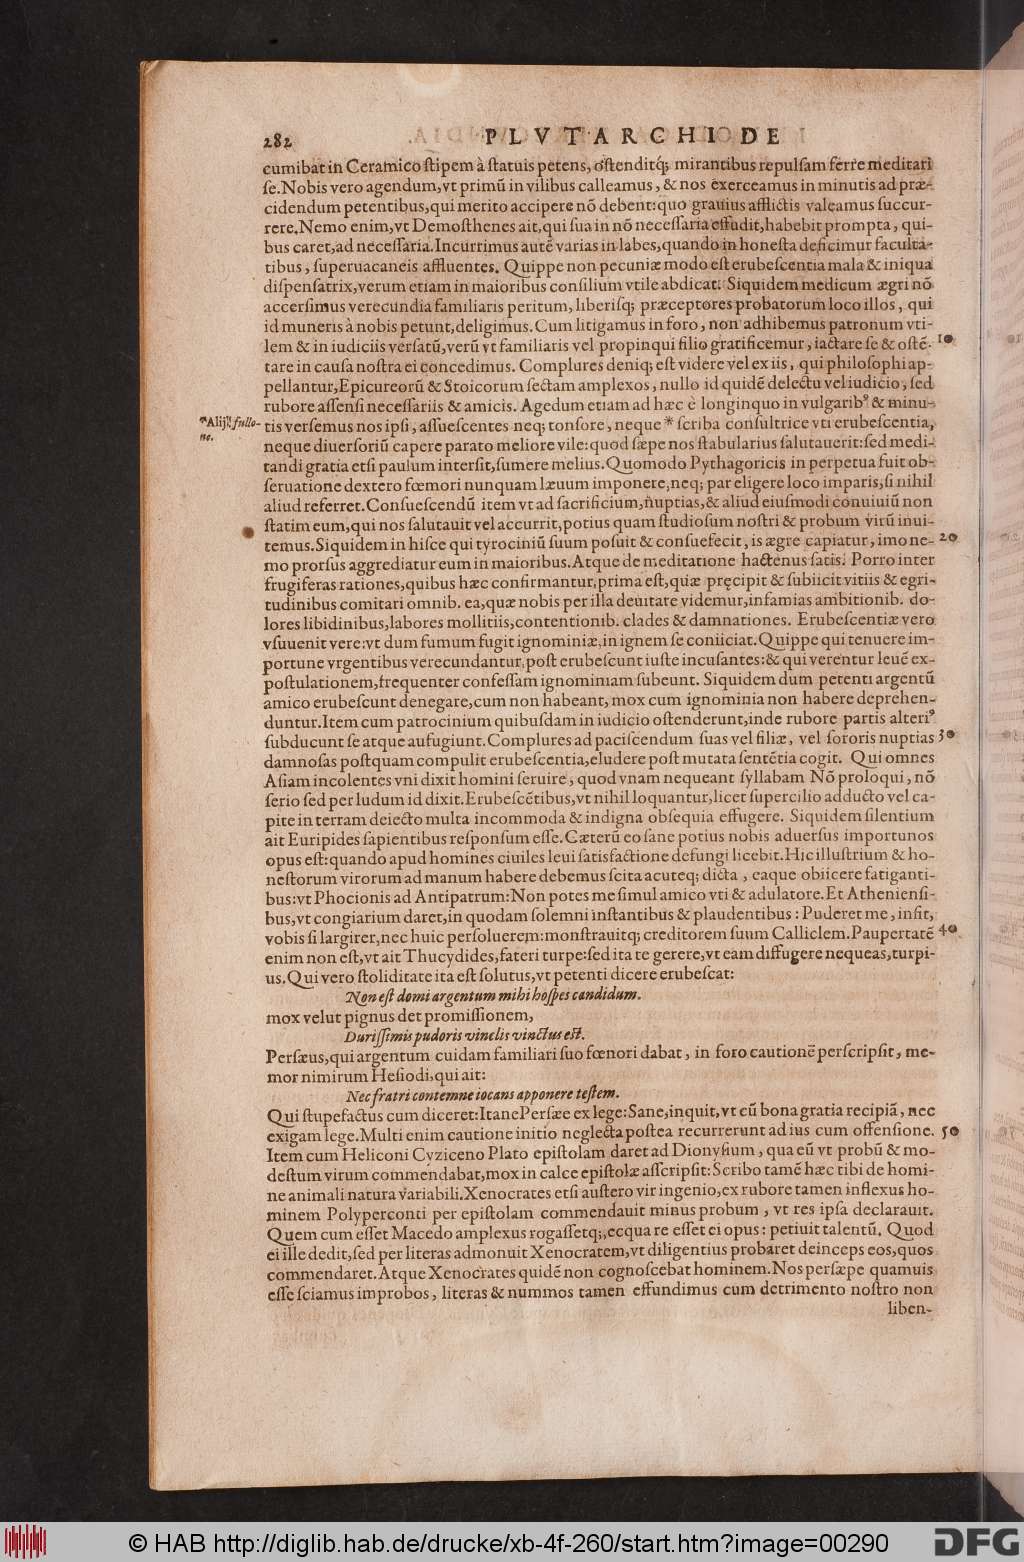 282 PLVTARCHI DE
cumibat in Ceramico ſtipem à ſtatuis petens, oſtenditq́; mirantibus repulſam ferre meditari
ſe. Nobis vero agendum, vt primũ in vilibus calleamus, & nos exerceamus in minutis ad præ-
cidendum petentibus, qui merito accipere nõ debent: quo grauius afflictis valeamus ſuccur-
rere. Nemo enim, vt Demoſthenes ait, qui ſua in nõ neceſſaria effudit, habebit prompta, qui-
bus caret, ad neceſſaria. Incurrimus autẽ varias in labes, quando in honeſta deficimur faculta-
tibus, ſuperuacaneis affluentes. Quippe non pecuniæ modo eſt erubeſcentia mala & iniqua
diſpenſatrix, verum etiam in maioribus conſilium vtile abdicat. Siquidem medicum ægri nõ
accerſimus verecundia familiaris peritum, liberiſq; præceptores probatorum loco illos, qui
id muneris à nobis petunt, deligimus. Cum litigamus in foro, non adhibemus patronum vti-
lem & in iudiciis verſatũ, verũ vt familiaris vel propinqui filio gratificemur, iactare ſe & oſtẽ- 10
tare in cauſa noſtra ei concedimus. Complures deniq; eſt videre vel ex iis, qui philoſophi ap-
pellantur, Epicureorũ & Stoicorum ſectam amplexos, nullo id quidẽ delectu vel iudicio, ſed
rubore aſſenſi neceſſariis & amicis. Agedum etiam ad hæc è longinquo in vulgarib⁹ & minu-
*Alij, fullo-
ne.
tis verſemus nos ipſi, aſſueſcentes neq; tonſore, neque * ſcriba conſultrice vti erubeſcentia,
neque diuerſoriũ capere parato meliore vile: quod ſæpe nos ſtabularius ſalutauerit: ſed medi-
tandi gratia etſi paulum interſit, ſumere melius. Quomodo Pythagoricis in perpetua fuit ob-
ſeruatione dextero fœmori nunquam læuum imponere, neq; par eligere loco imparis, ſi nihil
aliud referret. Conſueſcendũ item vt ad ſacrificium, nuptias, & aliud eiuſmodi conuiuiũ non
ſtatim eum, qui nos ſalutauit vel accurrit, potius quam ſtudioſum noſtri & probum virũ inui-
temus. Siquidem in hiſce qui tyrociniũ ſuum poſuit & conſuefecit, is ægre capiatur, imo ne- 20
mo prorſus aggrediatur eum in maioribus. Atque de meditatione hactenus ſatis. Porro inter
frugiferas rationes, quibus hæc confirmantur, prima eſt, quæ pręcipit & ſubiicit vitiis & egri-
tudinibus comitari omnib. ea, quæ nobis per illa deuitare videmur, infamias ambitionib. do-
lores libidinibus, labores mollitiis, contentionib. clades & damnationes. Erubeſcentiæ vero
vſuuenit vere: vt dum fumum fugit ignominiæ, in ignem ſe coniiciat. Quippe qui tenuere im-
portune vrgentibus verecundantur, poſt erubeſcunt iuſte incuſantes: & qui verentur leuẽ ex-
poſtulationem, frequenter confeſſam ignominiam ſubeunt. Siquidem dum petenti argentũ
amico erubeſcunt denegare, cum non habeant, mox cum ignominia non habere deprehen-
duntur. Item cum patrocinium quibuſdam in iudicio oſtenderunt, inde rubore partis alteri⁹
ſubducunt ſe atque aufugiunt. Complures ad paciſcendum ſuas vel filiæ, vel ſororis nuptias 30
damnoſas poſtquam compulit erubeſcentia, eludere poſt mutata ſentẽtia cogit. Qui omnes
Aſiam incolentes vni dixit homini ſeruire, quod vnam nequeant ſyllabam Nõ proloqui, nõ
ſerio ſed per ludum id dixit. Erubeſcẽtibus, vt nihil loquantur, licet ſupercilio adducto vel ca-
pite in terram deiecto multa incommoda & indigna obſequia effugere. Siquidem ſilentium
ait Euripides ſapientibus reſponſum eſſe. Cæterũ eo ſane potius nobis aduerſus importunos
opus eſt: quando apud homines ciuiles leui ſatisfactione defungi licebit. Hic illuſtrium & ho-
neſtorum virorum ad manum habere debemus ſcita acuteq; dicta, eaque obiicere fatiganti-
bus: vt Phocionis ad Antipatrum: Non potes me ſimul amico vti & adulatore. Et Athenienſi-
bus, vt congiarium daret, in quodam ſolemni inſtantibus & plaudentibus: Puderet me, inſit,
vobis ſi largirer, nec huic perſoluerem: monſtrauitq; creditorem ſuum Calliclem. Paupertatẽ 40
enim non eſt, vt ait Thucydides, fateri turpe: ſed ita te gerere, vt eam diffugere nequeas, turpi-
us. Qui vero ſtoliditate ita eſt ſolutus, vt petenti dicere erubeſcat:
Non eſt domi argentum mihi hoſpes candidum.
mox velut pignus det promiſſionem,
Duriſſimis pudoris vinclis vinctus eſt.
Perſæus, qui argentum cuidam familiari ſuo fœnori dabat, in foro cautionẽ perſcripſit, me-
mor nimirum Heſiodi, qui ait:
Nec fratri contemne iocans apponere teſtem.
Qui ſtupefactus cum diceret: Itane Perſæe ex lege: Sane, inquit, vt cũ bona gratia recipiã, nec
exigam lege. Multi enim cautione initio neglecta poſtea recurrerunt ad ius cum offenſione. 50
Item cum Heliconi Cyziceno Plato epiſtolam daret ad Dionyſium, qua eũ vt probũ & mo-
deſtum virum commendabat, mox in calce epiſtolæ aſſcripſit: Scribo tamẽ hæc tibi de homi-
ne animali natura variabili. Xenocrates etſi auſtero vir ingenio, ex rubore tamen inflexus ho-
minem Polyperconti per epiſtolam commendauit minus probum, vt res ipſa declarauit.
Quem cum eſſet Macedo amplexus rogaſſetq;, ecqua re eſſet ei opus: petiuit talentũ. Quod
ei ille dedit, ſed per literas admonuit Xenocratem, vt diligentius probaret deinceps eos, quos
commendaret. Atque Xenocrates quidẽ non cognoſcebat hominem. Nos perſæpe quamuis
eſſe ſciamus improbos, literas & nummos tamen effundimus cum detrimento noſtro non
liben-
© HAB http://diglib.hab.de/drucke/xb-4f-260/start.htm?image=00290
DFG